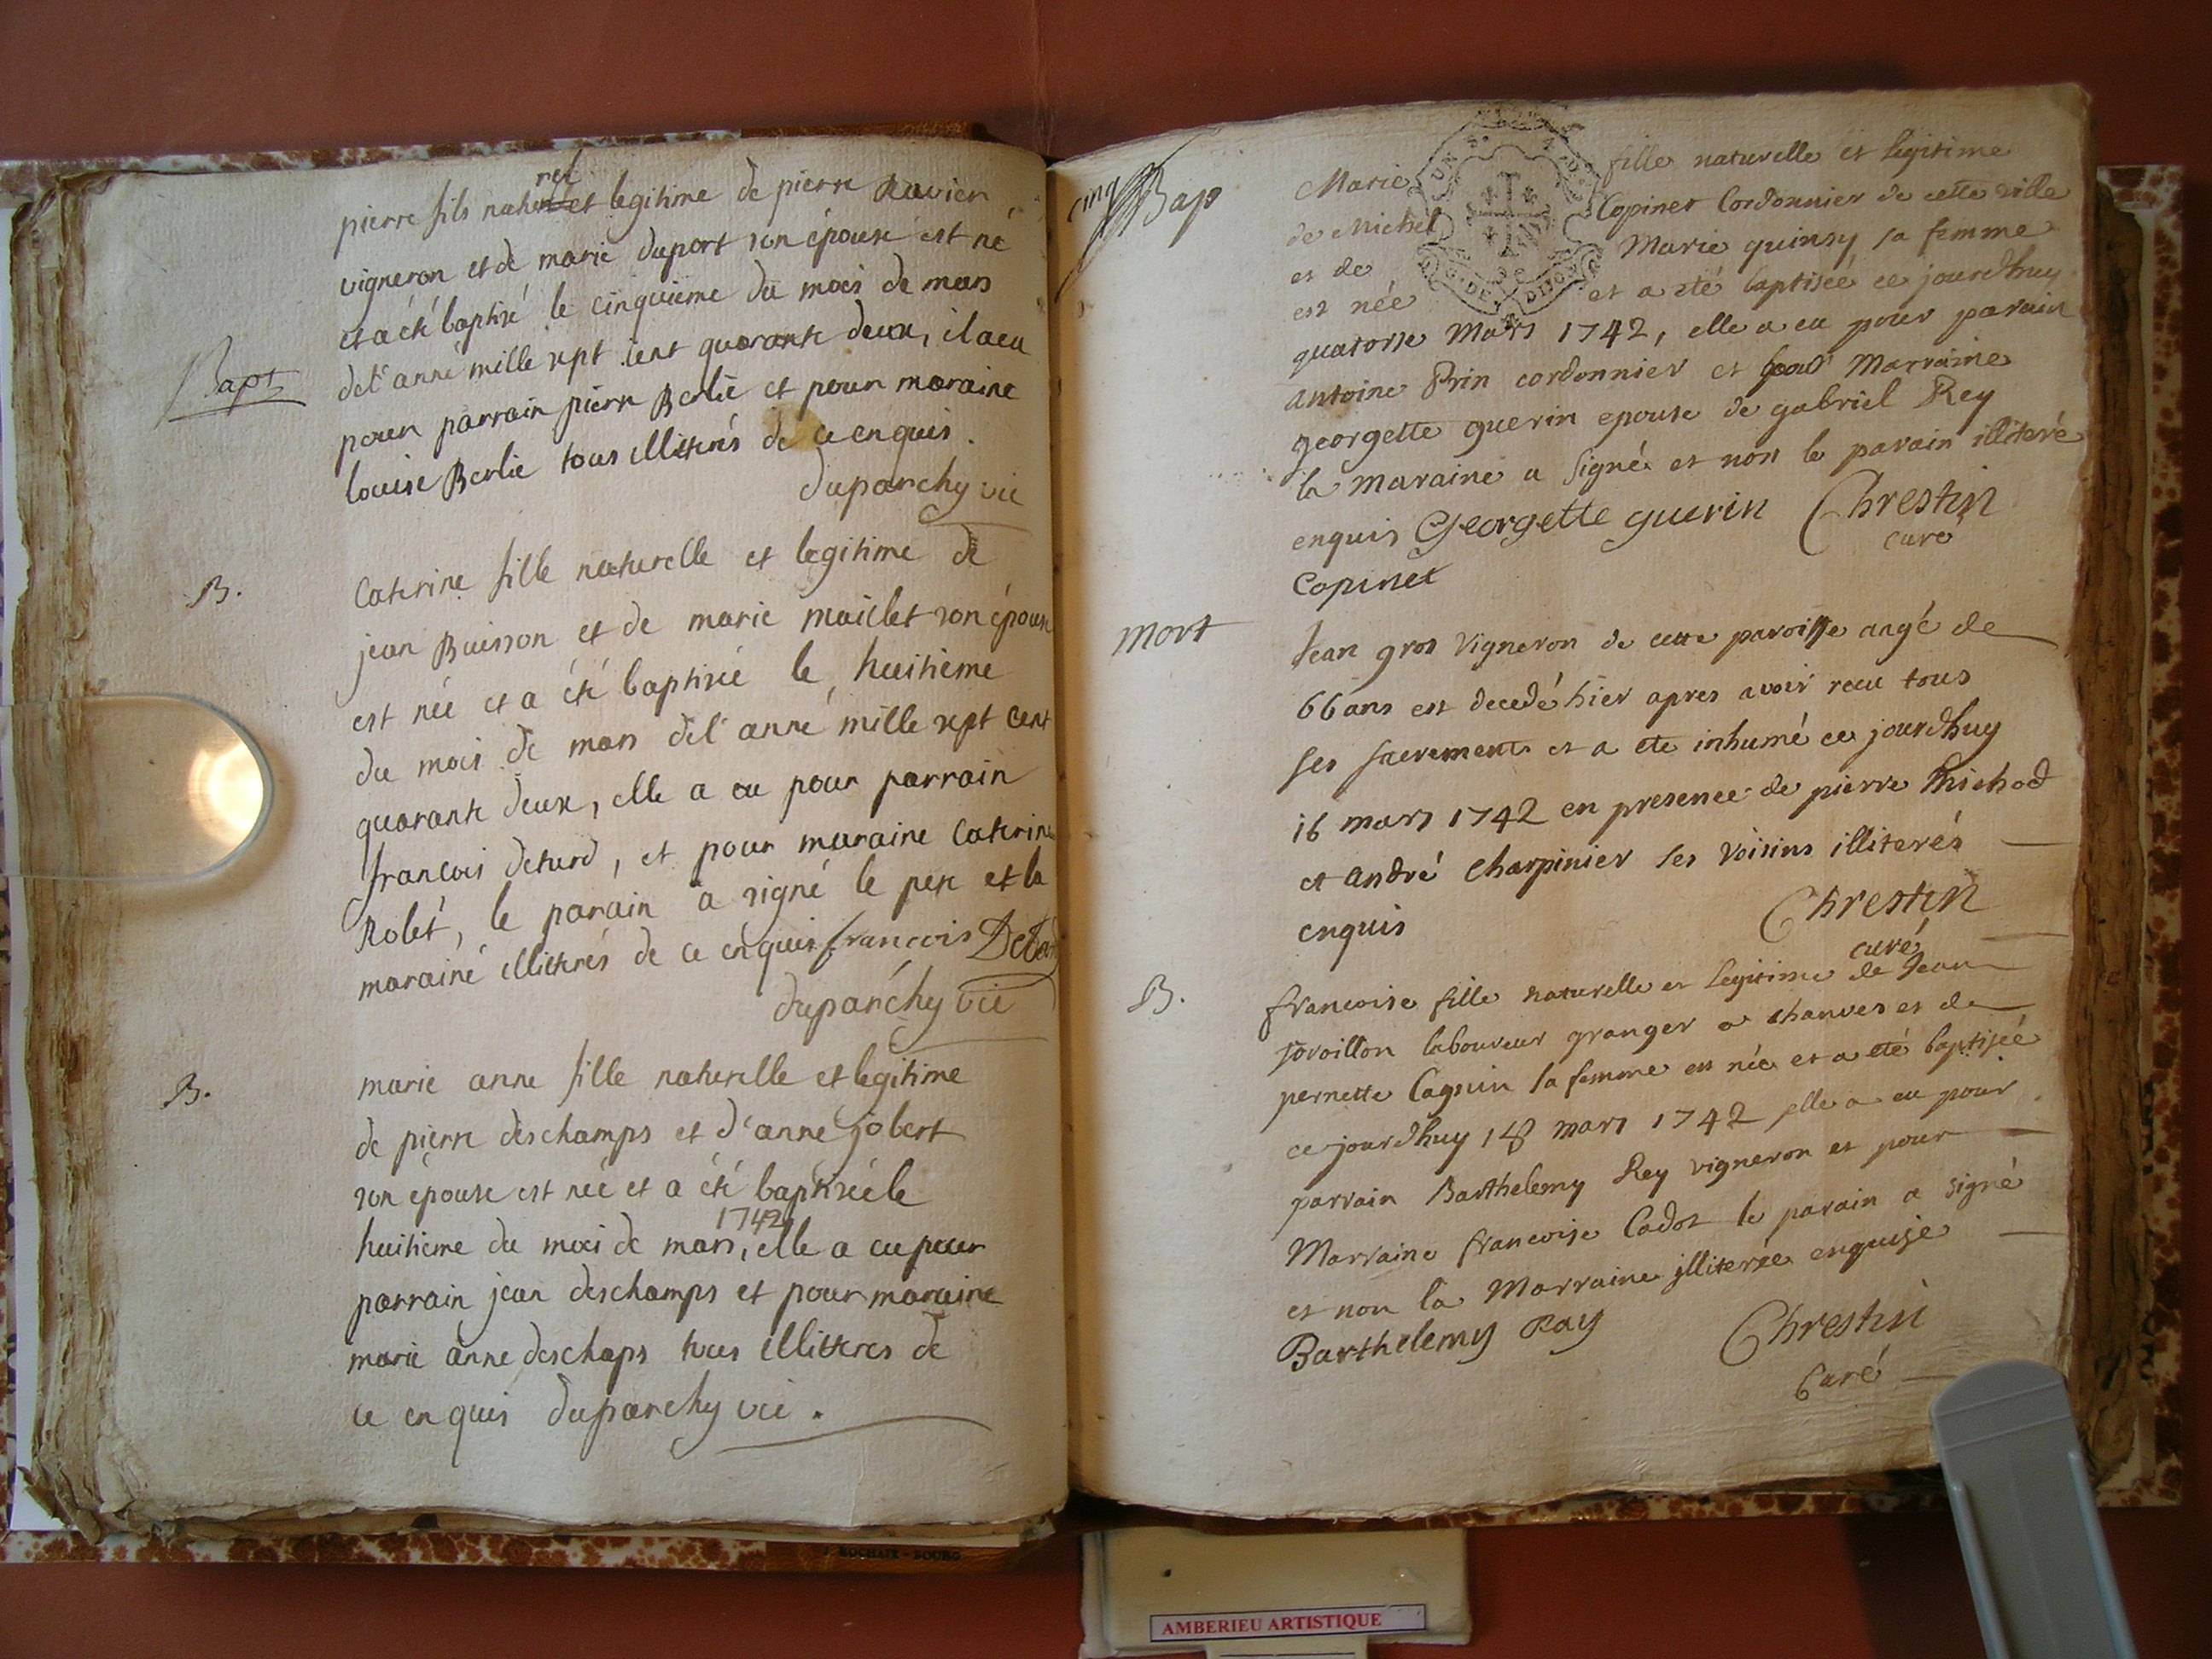 Bapt
pierre fils naturel et legitime de pierre Ravier
vigneron et de marie duport son épouse est né
et a été baptisé le cinquieme du mois de mars
de l'anné mille sept cent quarante deux, il a eu
pour parrain pierre Berlie et pour maraine
louise Berlie tous illitterés de ce enquis.
duparchy vic
B.
Caterine fille naturelle et legitime de
jean Buisson et de marie maillet son épouse
est née et a été baptisée le huitieme
du mois de mars de l'anné mille sept cent
quarante deux, elle a eu pour parrain
françois deturd, et pour maraine Caterine
Rolet, le parain a signé le pere et la
maraine illitterés de ce enquis francois
duparchy vic
B.
marie anne fille naturelle et legitime
de pierre deschamps et d'anne jobert
son épouse est née et a été baptisée le
huitieme du mois de mars, 1742 elle a eu pour
parrain jean deschamps et pour maraine
marie anne deschaps tous illitteres de
ce enquis duparchy vic.
J. ROCHAIX - BOURG
cinq
Bap
Marie fille naturelle et legitime
de Michel Copinet Cordonnier de cette ville
et de Marie quinsy sa femme
est née et a eté baptiseé ce jourdhuy
quatorse Mars 1742, elle a eu pour parain
antoine Prin cordonnier et pour Marraine
georgette guerin epouse de gabriel Rey
la maraine a signé et non le parain illiteré
enquis Georgette guerin Chrestin
curé
Copinet
mort
Jean gros Vigneron de cette paroisse angé de
66 ans est decedé hier apres avoir recu tous
ses sacrements et a ete inhumé ce jourdhuy
16 mars 1742 en presence de pierre Michod
et andré Charpinier ses voisins illiterés
enquis Chrestin
curé
B.
francoise fille naturelle et legitime de Jean
joroillon laboureur granger a chanves et de
pernette Cagnin sa femme est née et a eté baptiseé
ce jourdhuy 18 mars 1742 elle a eu pour
parrain Barthelemy Rey vigneron et pour
Marraine francoise Cadot le parain a signé
et non la Marraine illiterée enquise
Barthelemy Ray Chrestin
Curé
AMBERIEU ARTISTIQUE